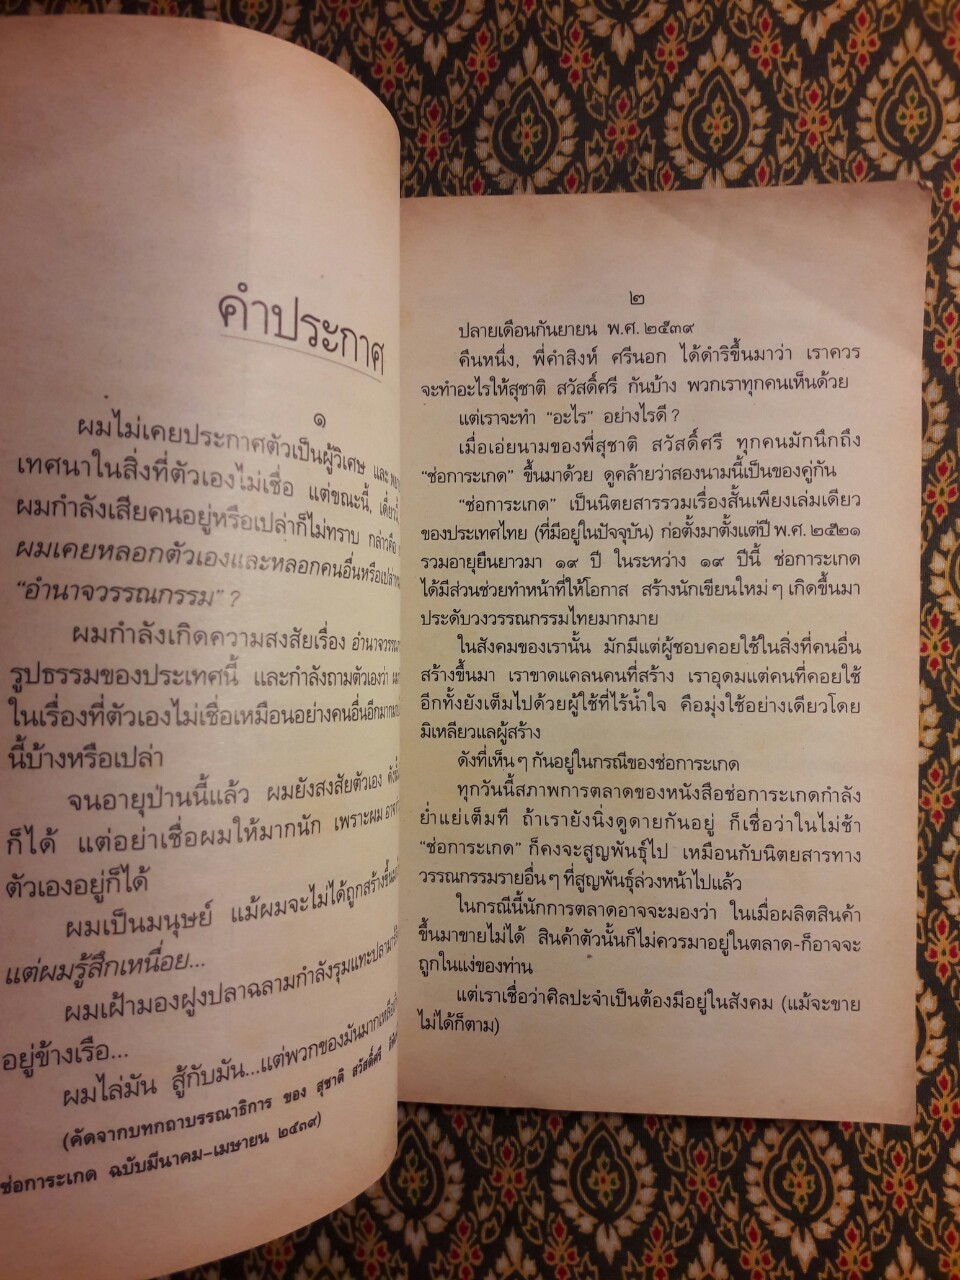 คำประกาศ
๑
ผมไม่เคยประกาศตัวเป็นผู้วิเศษ และ
เทศนาในสิ่งที่ตัวเองไม่เชื่อ แต่ขณะนี้,
ผมกำลังเสียคนอยู่หรือเปล่าก็ไม่ทราบ กล่าวคือ
ผมเคยหลอกตัวเองและหลอกคนอื่นหรือเปล่า
“อำนาจวรรณกรรม” ?
ผมกำลังเกิดความสงสัยเรื่อง อำนาจวรรณ
รูปธรรมของประเทศนี้ และกำลังถามตัวเองว่า
ในเรื่องที่ตัวเองไม่เชื่อเหมือนอย่างคนอื่นอีกมากมาย
นี้บ้างหรือเปล่า
จนอายุป่านนี้แล้ว ผมยังสงสัยตัวเอง
ก็ได้ แต่อย่าเชื่อผมให้มากนัก เพราะผม
ตัวเองอยู่ก็ได้
ผมเป็นมนุษย์ แม้ผมจะไม่ได้ถูกสร้างขึ้น
แต่ผมรู้สึกเหนื่อย...
ผมเฝ้ามองฝูงปลาฉลามกำลังรุมแทะปลา
อยู่ข้างเรือ...
ผมไล่มัน สู้กับมัน...แต่พวกของมันมากเหลือ
(คัดจากบทกถาบรรณาธิการ ของ สุชาติ สวัสดิ์ศรี
ช่อการะเกด ฉบับมีนาคม-เมษายน ๒๕๓๙)
๒
ปลายเดือนกันยายน พ.ศ. ๒๕๓๙
คืนหนึ่ง, พี่คำสิงห์ ศรีนอก ได้ดำริขึ้นมาว่า เราควร
จะทำอะไรให้สุชาติ สวัสดิ์ศรี กันบ้าง พวกเราทุกคนเห็นด้วย
แต่เราจะทำ “อะไร” อย่างไรดี ?
เมื่อเอ่ยนามของพี่สุชาติ สวัสดิ์ศรี ทุกคนมักนึกถึง
“ช่อการะเกด” ขึ้นมาด้วย ดูคล้ายว่าสองนามนี้เป็นของคู่กัน
“ช่อการะเกด” เป็นนิตยสารรวมเรื่องสั้นเพียงเล่มเดียว
ของประเทศไทย (ที่มีอยู่ในปัจจุบัน) ก่อตั้งมาตั้งแต่ปี พ.ศ. ๒๕๒๑
รวมอายุยืนยาวมา ๑๙ ปี ในระหว่าง ๑๙ ปีนี้ ช่อการะเกด
ได้มีส่วนช่วยทำหน้าที่ให้โอกาส สร้างนักเขียนใหม่ ๆ เกิดขึ้นมา
ประดับวงวรรณกรรมไทยมากมาย
ในสังคมของเรานั้น มักมีแต่ผู้ชอบคอยใช้ในสิ่งที่คนอื่น
สร้างขึ้นมา เราขาดแคลนคนที่สร้าง เราอุดมแต่คนที่คอยใช้
อีกทั้งยังเต็มไปด้วยผู้ใช้ที่ไร้น้ำใจ คือมุ่งใช้อย่างเดียวโดย
มิเหลียวแลผู้สร้าง
ดังที่เห็น ๆ กันอยู่ในกรณีของช่อการะเกด
ทุกวันนี้สภาพการตลาดของหนังสือช่อการะเกดกำลัง
ย่ำแย่เต็มที ถ้าเรายังนิ่งดูดายกันอยู่ ก็เชื่อว่าในไม่ช้า
“ช่อการะเกด” ก็คงจะสูญพันธุ์ไป เหมือนกับนิตยสารทาง
วรรณกรรมรายอื่น ๆ ที่สูญพันธุ์ล่วงหน้าไปแล้ว
ในกรณีนี้นักการตลาดอาจจะมองว่า ในเมื่อผลิตสินค้า
ขึ้นมาขายไม่ได้ สินค้าตัวนั้นก็ไม่ควรมาอยู่ในตลาด-ก็อาจจะ
ถูกในแง่ของท่าน
แต่เราเชื่อว่าศิลปะจำเป็นต้องมีอยู่ในสังคม (แม้จะขาย
ไม่ได้ก็ตาม)